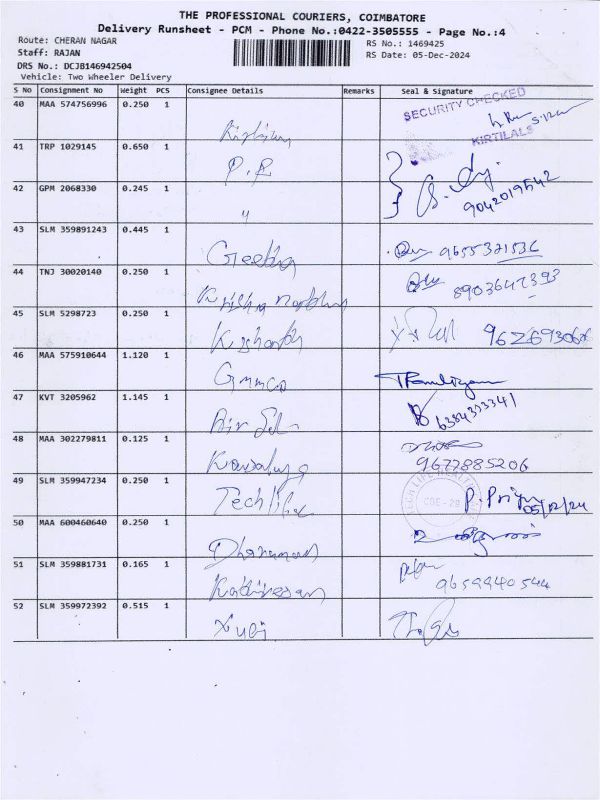 THE PROFESSIONAL COURIERS, COIMBATORE
Delivery Runsheet - PCM - Phone No.:0422-3505555 - Page No.:4
Route: CHERAN NAGAR RS No.: 1469425
Staff: RAJAN RS Date: 05-Dec-2024
DRS No.: DCJB146942504
Vehicle: Two Wheeler Delivery
S No Consignment No Weight PCS Consignee Details Remarks Seal & Signature
40 MAA 574756996 0.250 1 SECURITY CHECKED
KIRTILALS
41 TRP 1029145 0.650 1
P. R
42 GPM 2068330 0.245 1 9042019542
43 SLM 359891243 0.445 1
Geetha 9655321536
44 TNJ 30020140 0.250 1 8903647393
Krishna
45 SLM 5298723 0.250 1
962693068
46 MAA 575910644 1.120 1
47 KVT 3205962 1.145 1 6384333341
Air
48 MAA 302279811 0.125 1
9677885206
49 SLM 359947234 0.250 1 TECH LIFE HEALTH
Techlife CBE - 29 P. Priya
05/12/24
50 MAA 600460640 0.250 1
51 SLM 359881731 0.165 1
Kathiresan 9659940544
52 SLM 359972392 0.515 1